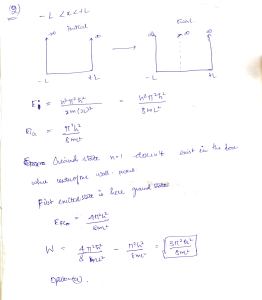 9
-L < x < +L
initial final
∞ ∞ ∞ ∞ ∞
-L +L -L +L
Ei = n²π²ħ² / 2m(2L)² = n²π²ħ² / 8mL²
EG = π²ħ² / 8mL²
Ground state n=1 doesn't exist in the box
when center of the wall
First excited state is here ground state
= 4π²ħ² / 8mL²
W = 4π²ħ² / 8mL² - π²ħ² / 8mL² = 3π²ħ² / 8mL²
Option(a).